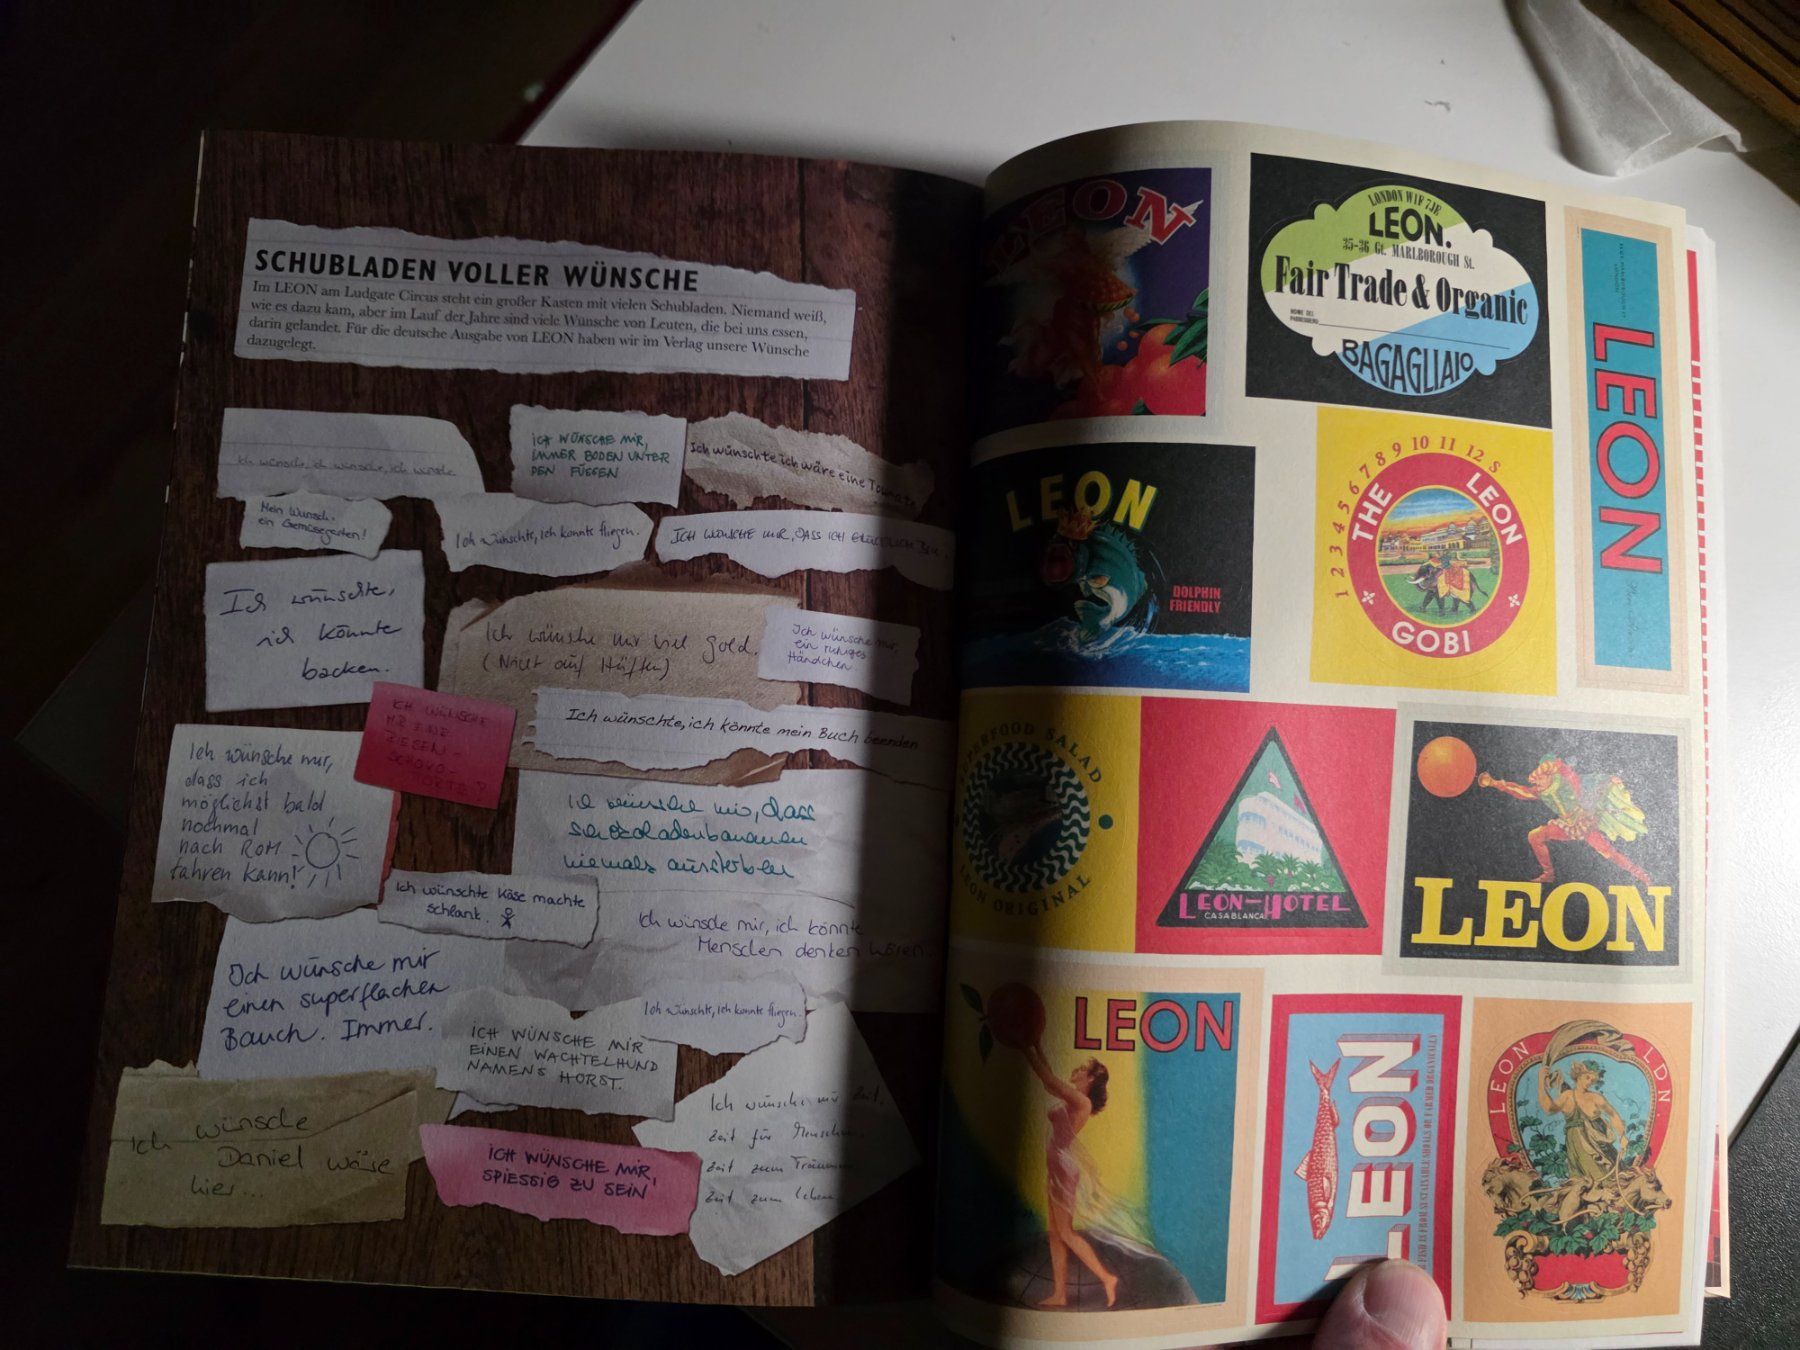 SCHUBLADEN VOLLER WÜNSCHE
Im LEON am Ludgate Circus steht ein großer Kasten mit vielen Schubladen. Niemand weiß,
wie es dazu kam, aber im Lauf der Jahre sind viele Wünsche von Leuten, die bei uns essen,
darin gelandet. Für die deutsche Ausgabe von LEON haben wir im Verlag unsere Wünsche
dazugelegt.
Ich wünsche, ich wünsche, ich wünsche
ICH WÜNSCHE MIR,
IMMER BODEN UNTER
DEN FÜSSEN
Ich wünschte ich wäre eine Tomate
Mein Wunsch:
ein Gemüsegarten!
Ich wünschte, ich könnte fliegen.
ICH WÜNSCHE MIR, DASS ICH GLÜCKLICH
Ich wünschte,
ich könnte
backen.
Ich wünsche mir viel Gold.
(Nicht auf Hüften)
Ich wünsche mir
ein ruhiges
Händchen
ICH WÜNSCHE
MIR EINE
RIESEN-
SCHOKO-
TORTE!
Ich wünschte, ich könnte mein Buch beenden
Ich wünsche mir,
dass ich
möglichst bald
nochmal
nach ROM
fahren kann!
Ich wünsche mir, dass
Schokoladenbananen
niemals aussterben
Ich wünschte Käse machte
schlank.
Ich wünsche mir, ich könnte
Menschen denken hören.
Ich wünsche mir
einen superflachen
Bauch. Immer.
Ich wünschte, ich könnte fliegen.
ICH WÜNSCHE MIR
EINEN WACHTELHUND
NAMENS HORST.
Ich wünsche mir Zeit.
Zeit für Menschen
Zeit zum Träumen
Zeit zum Leben
Ich wünsche
Daniel wäre
hier...
ICH WÜNSCHE MIR,
SPIESSIG ZU SEIN
LEON
LONDON W1F 7JE
LEON.
35-36 Gt. MARLBOROUGH St.
Fair Trade & Organic
NOME DEL
PASSEGGERO
BAGAGLIAIO
LEON
LEON
DOLPHIN
FRIENDLY
1 2 3 4 5 6 7 8 9 10 11 12 S
THE LEON
GOBI
SUPERFOOD SALAD
LEON ORIGINAL
LEON-HOTEL
CASABLANCA
LEON
LEON
LEON
FISH IS FROM SUSTAINABLE SHOALS OR FARMED ORGANICALLY
LEON LDN.